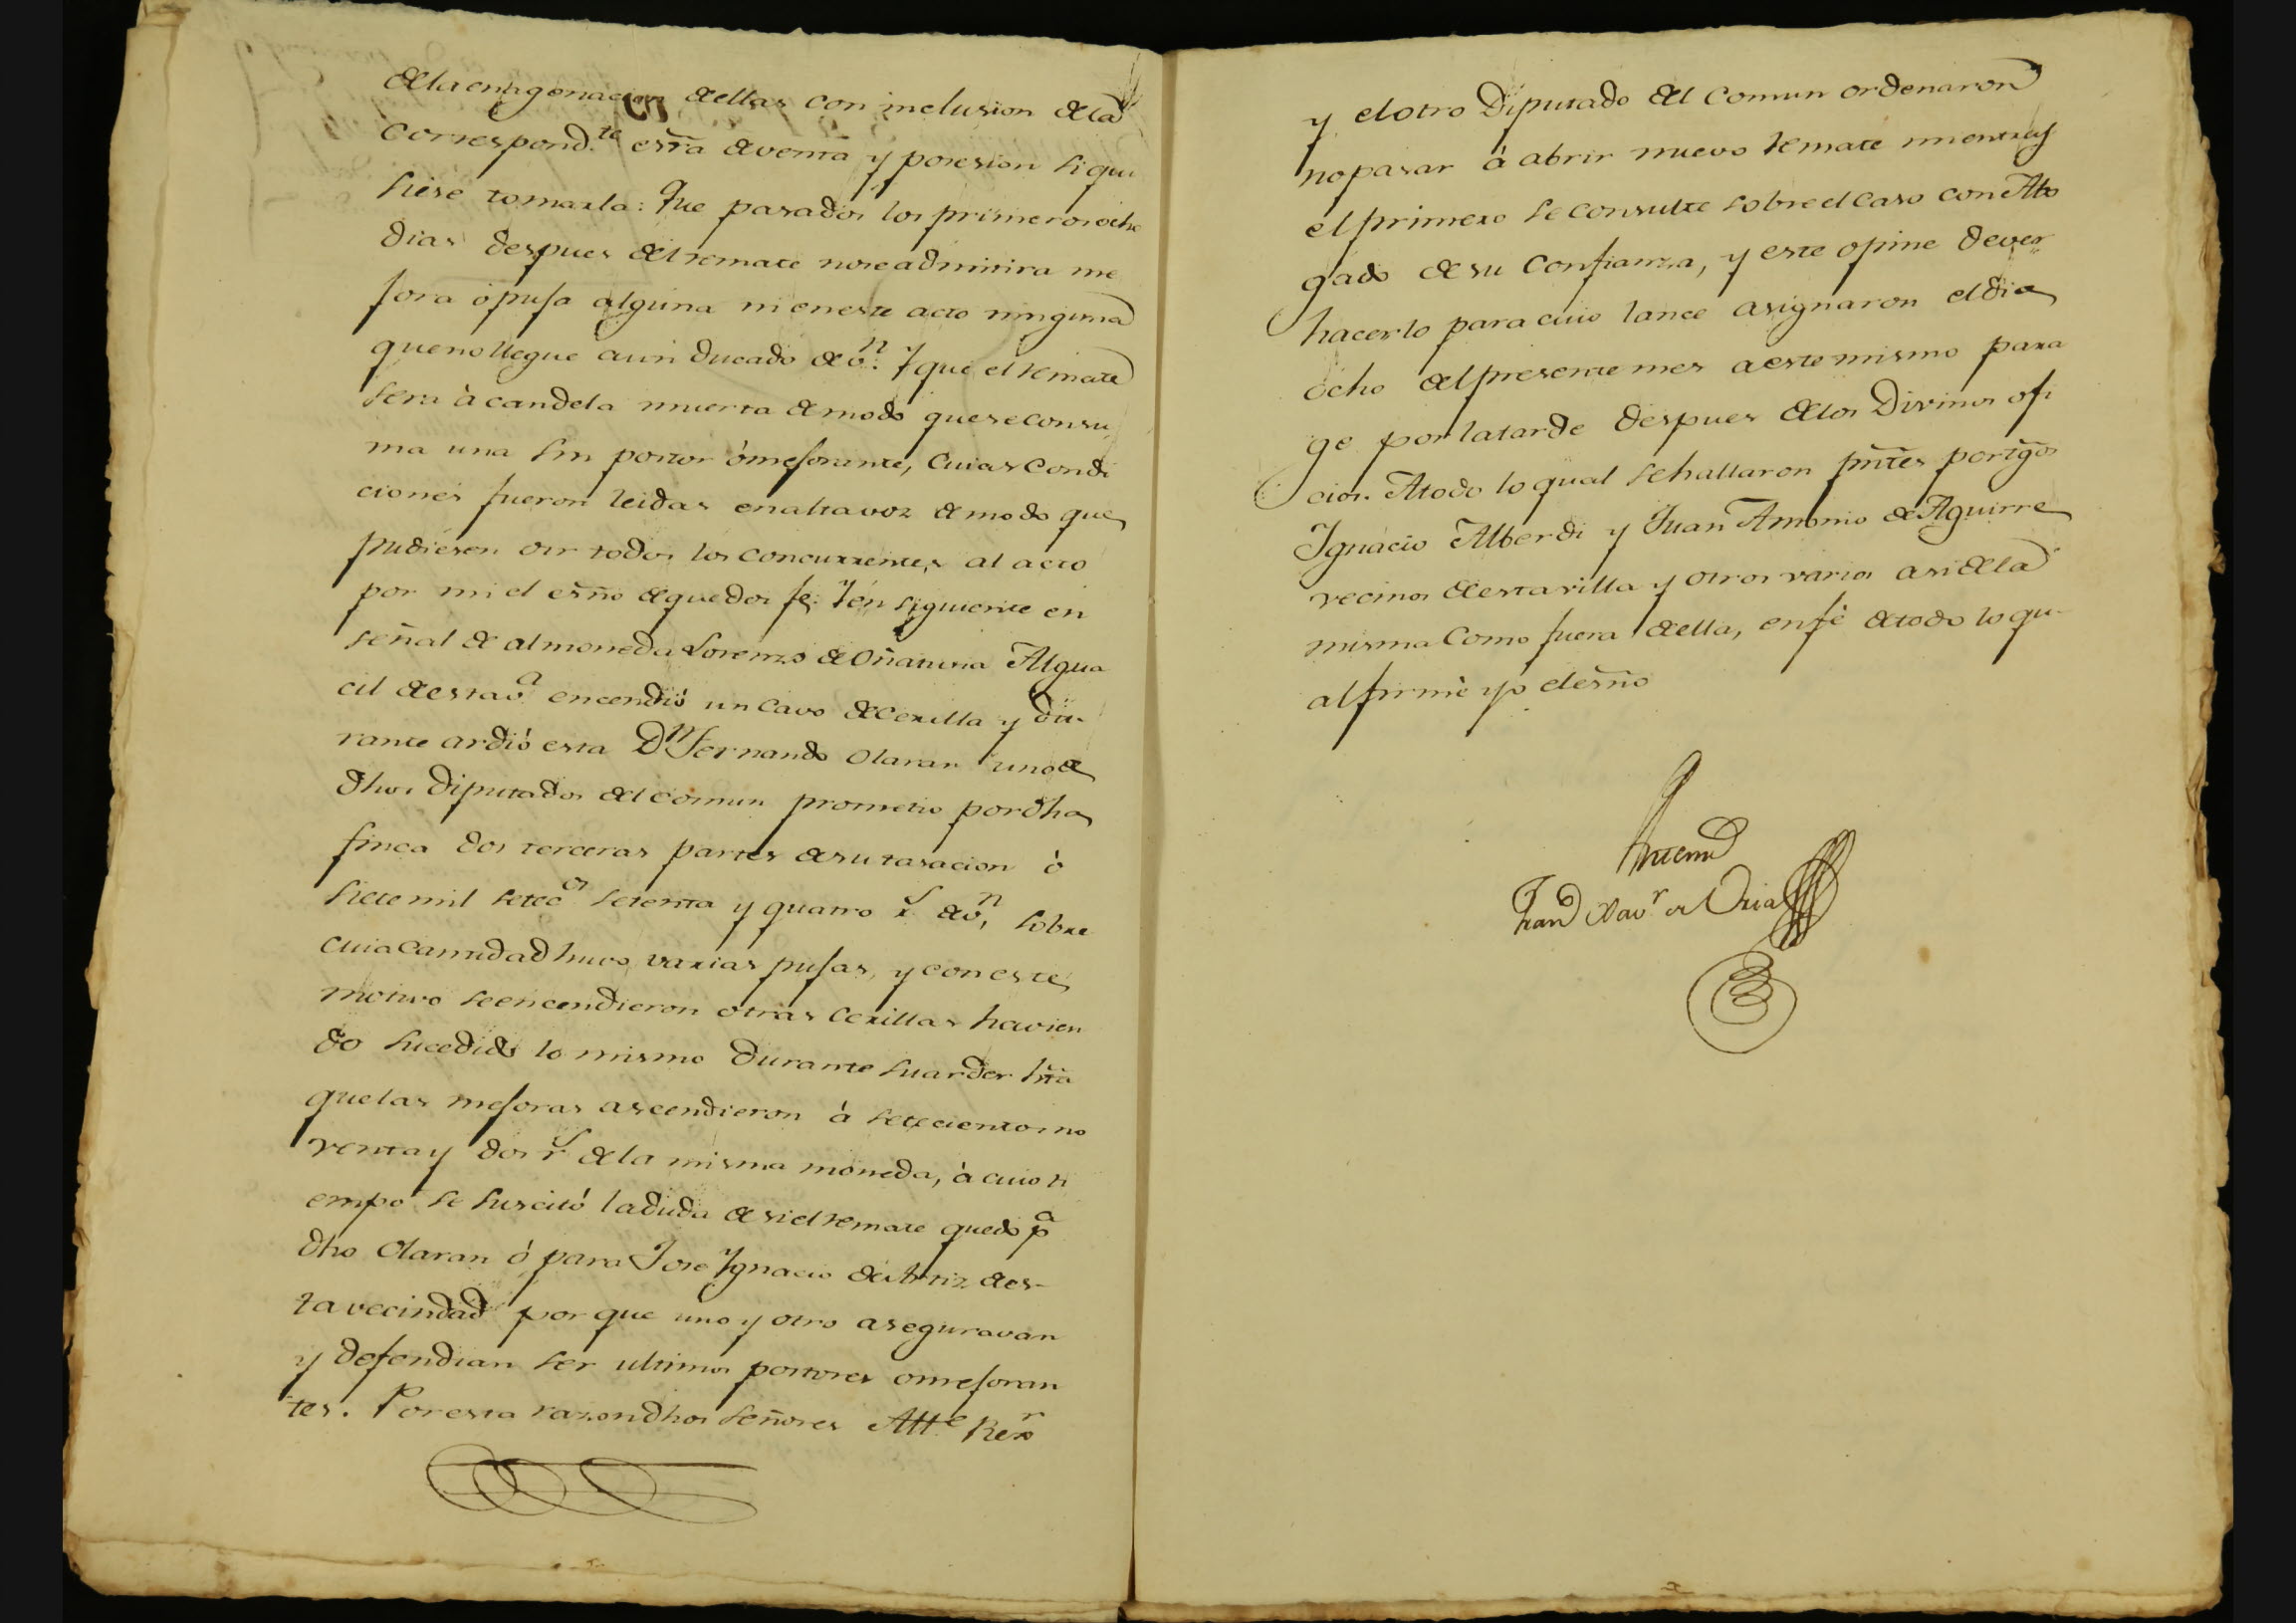 de la enagenacion de ellas con inclusion de la
correspond.te esrã de venta y posesion si qui
siese tomarla: Que pasados los primeros ocho
dias despues del remate nose admitira me
jora ó puja alguna ni en este acto ninguna
que no llegue a un ducado de v.n Y que el remate
sera à candela muerta de modo que se consu
ma una sin postor ó mejorante, cuias condi
ciones fueron leidas en alta voz de modo que
pudiesen oir todos los concurrentes al acto
por mi el esño de que doi fe. Y en siguiente en
señal de almoneda Lorenzo de Oñativia Algua
cil de esta v.a encendió un cavo de cerilla y du-
rante ardió esta D.n Fernando Olaran uno de
dhos Diputados del comun prometio por dha
finca dos terceras partes de su tasacion ò
siete mil setec.os setenta y quatro r.s de v.n, sobre
cuia cantidad huvo varias pujas, y con este
motivo se encendieron otras cerillas havien
do sucedido lo mismo durante su arder htã
que las mejoras ascendieron à setecientos no
venta y dos r.s de la misma moneda, à cuio ti
empo se suscitó la duda de si el remate quedo p.a
dho Olaran ó para Jose Ygnacio de Artiz de es-
ta vecindad por que uno y otro aseguravan
y defendian ser ultimos postores o mejoran
tes. Por esta razon dhos Señores Alle Rex.r
y el otro Diputado del Comun ordenaron
no pasar à abrir nuevo remate mientras
el primero se consulte sobre el caso con Abo
gado de su confianza, y este opine dever
hacerlo para cuio lance asignaron el dia
ocho del presente mes a este mismo para
ge por la tarde despues de los Divinos ofi
cios. A todo lo qual se hallaron pñtes por tg̃os
Ignacio Alberdi y Juan Antonio de Aguirre
vecinos de esta villa y otros varios asi de la
misma como fuera de ella, en fè de todo lo qu-
al firmè yo el esño
Antemi
Fran.co Xav.r de Oria